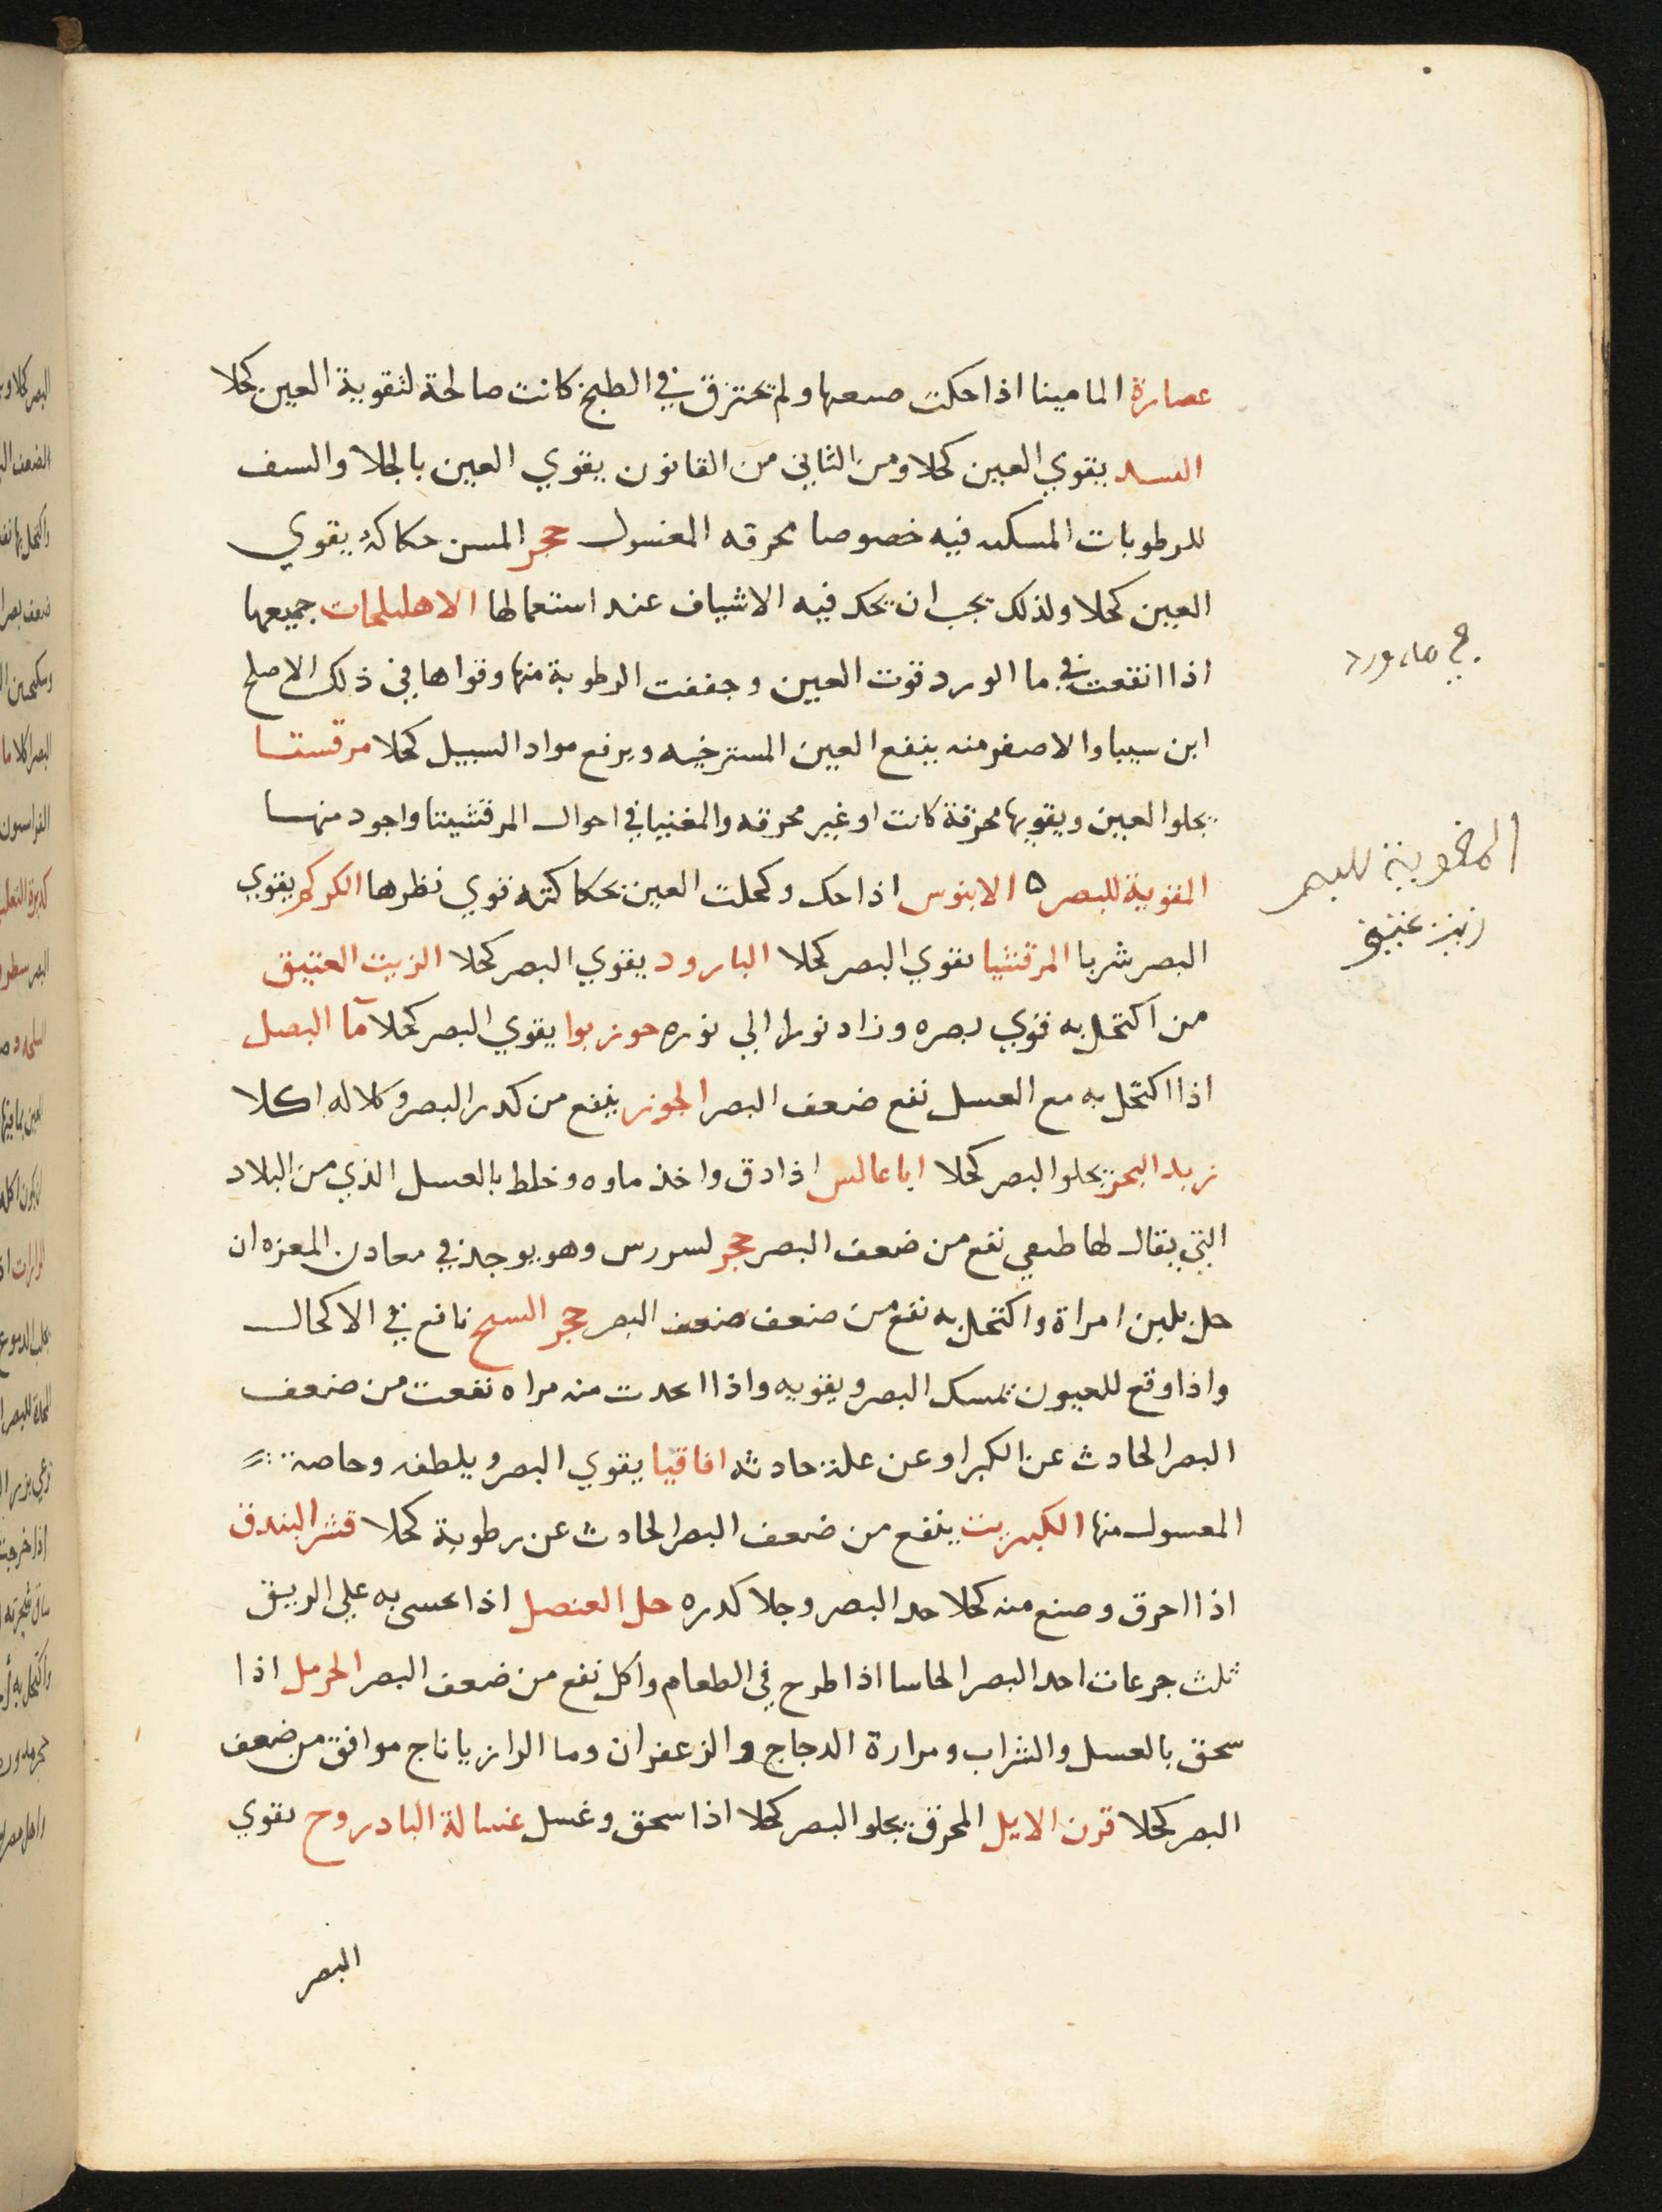 عصارة المامينا اذا حكت صنعها ولم تحترق في الطبخ كانت صالحة لتقوية العين كحلا
السد يقوي العين كحلا ومن الثاني من القانون يقوي العين بالجلا والسف
للرطوبات المسكنه فيه خصوصا محرقه المغسول حجر المسن حكاكه يقوي
العين كحلا ولذلك يجب ان يحك فيه الاشياف عند استعمالها الاهليلجات جميعها
اذا انقعت في ما الورد قوت العين وجففت الرطوبة منها وقواها في ذلك الاصلح
ابن سينا والاصفر منه ينفع العين المسترخيه ويرفع مواد السبيل كحلا مرقستا
يجلوا العين ويقويها محرقة كانت او غير محرقه والمغنيا في احوال المرقشيتا واجود منها
المقوية للبصر ه الابنوس اذا حك وكحلت العين بحكاكته قوي نظرها الكركم يقوي
البصر شربا المرقشيا يقوي البصر كحلا البارود يقوي البصر كحلا الزيت العتيق
من اكتحل به قوي بصره وزاد نورا الي نوره جوز بوا يقوي البصر كحلا مآ البصل
اذا اكتحل به مع العسل نفع ضعف البصر الجوز ينفع من كدر البصر وكلاله اكلا
زبد البحر يجلو البصر كحلا اباعالس اذا دق واخذ ماوه وخلط بالعسل الذي من البلاد
التي يقال لها طبعي نفع من ضعف البصر حجر لسورس وهو يوجد في معادن المعزه ان
حل بلبن امراة واكتحل به نفع من ضعف ضعف البصر حجر السبج نافع في الاكحال
واذا وقع للعيون تمسك البصر ويقويه واذا اتحدت منه مراه نفعت من ضعف
البصر الحادث عن الكبر او عن علة حادثه اقاقيا يقوي البصر ويلطفه وخاصة
المغسول منها الكبريت ينفع من ضعف البصر الحادث عن رطوبة كحلا قشر البندق
اذا احرق وصنع منه كحلا حد البصر وجلا كدره خل العنصل اذا تحسى به علي الريق
ثلث جرعات احد البصر الحاسا اذا طرح في الطعام واكل نفع من ضعف البصر الحرمل اذا
سحق بالعسل والشراب ومرارة الدجاج والزعفران وما الرازياناج موافق من ضعف
البصر كحلا قرن الايل المحرق يجلو البصر كحلا اذا سحق وغسل غسالة البادروج يقوي
البصر
في ماء ورد
المقوية للبصر
زيت عتيق